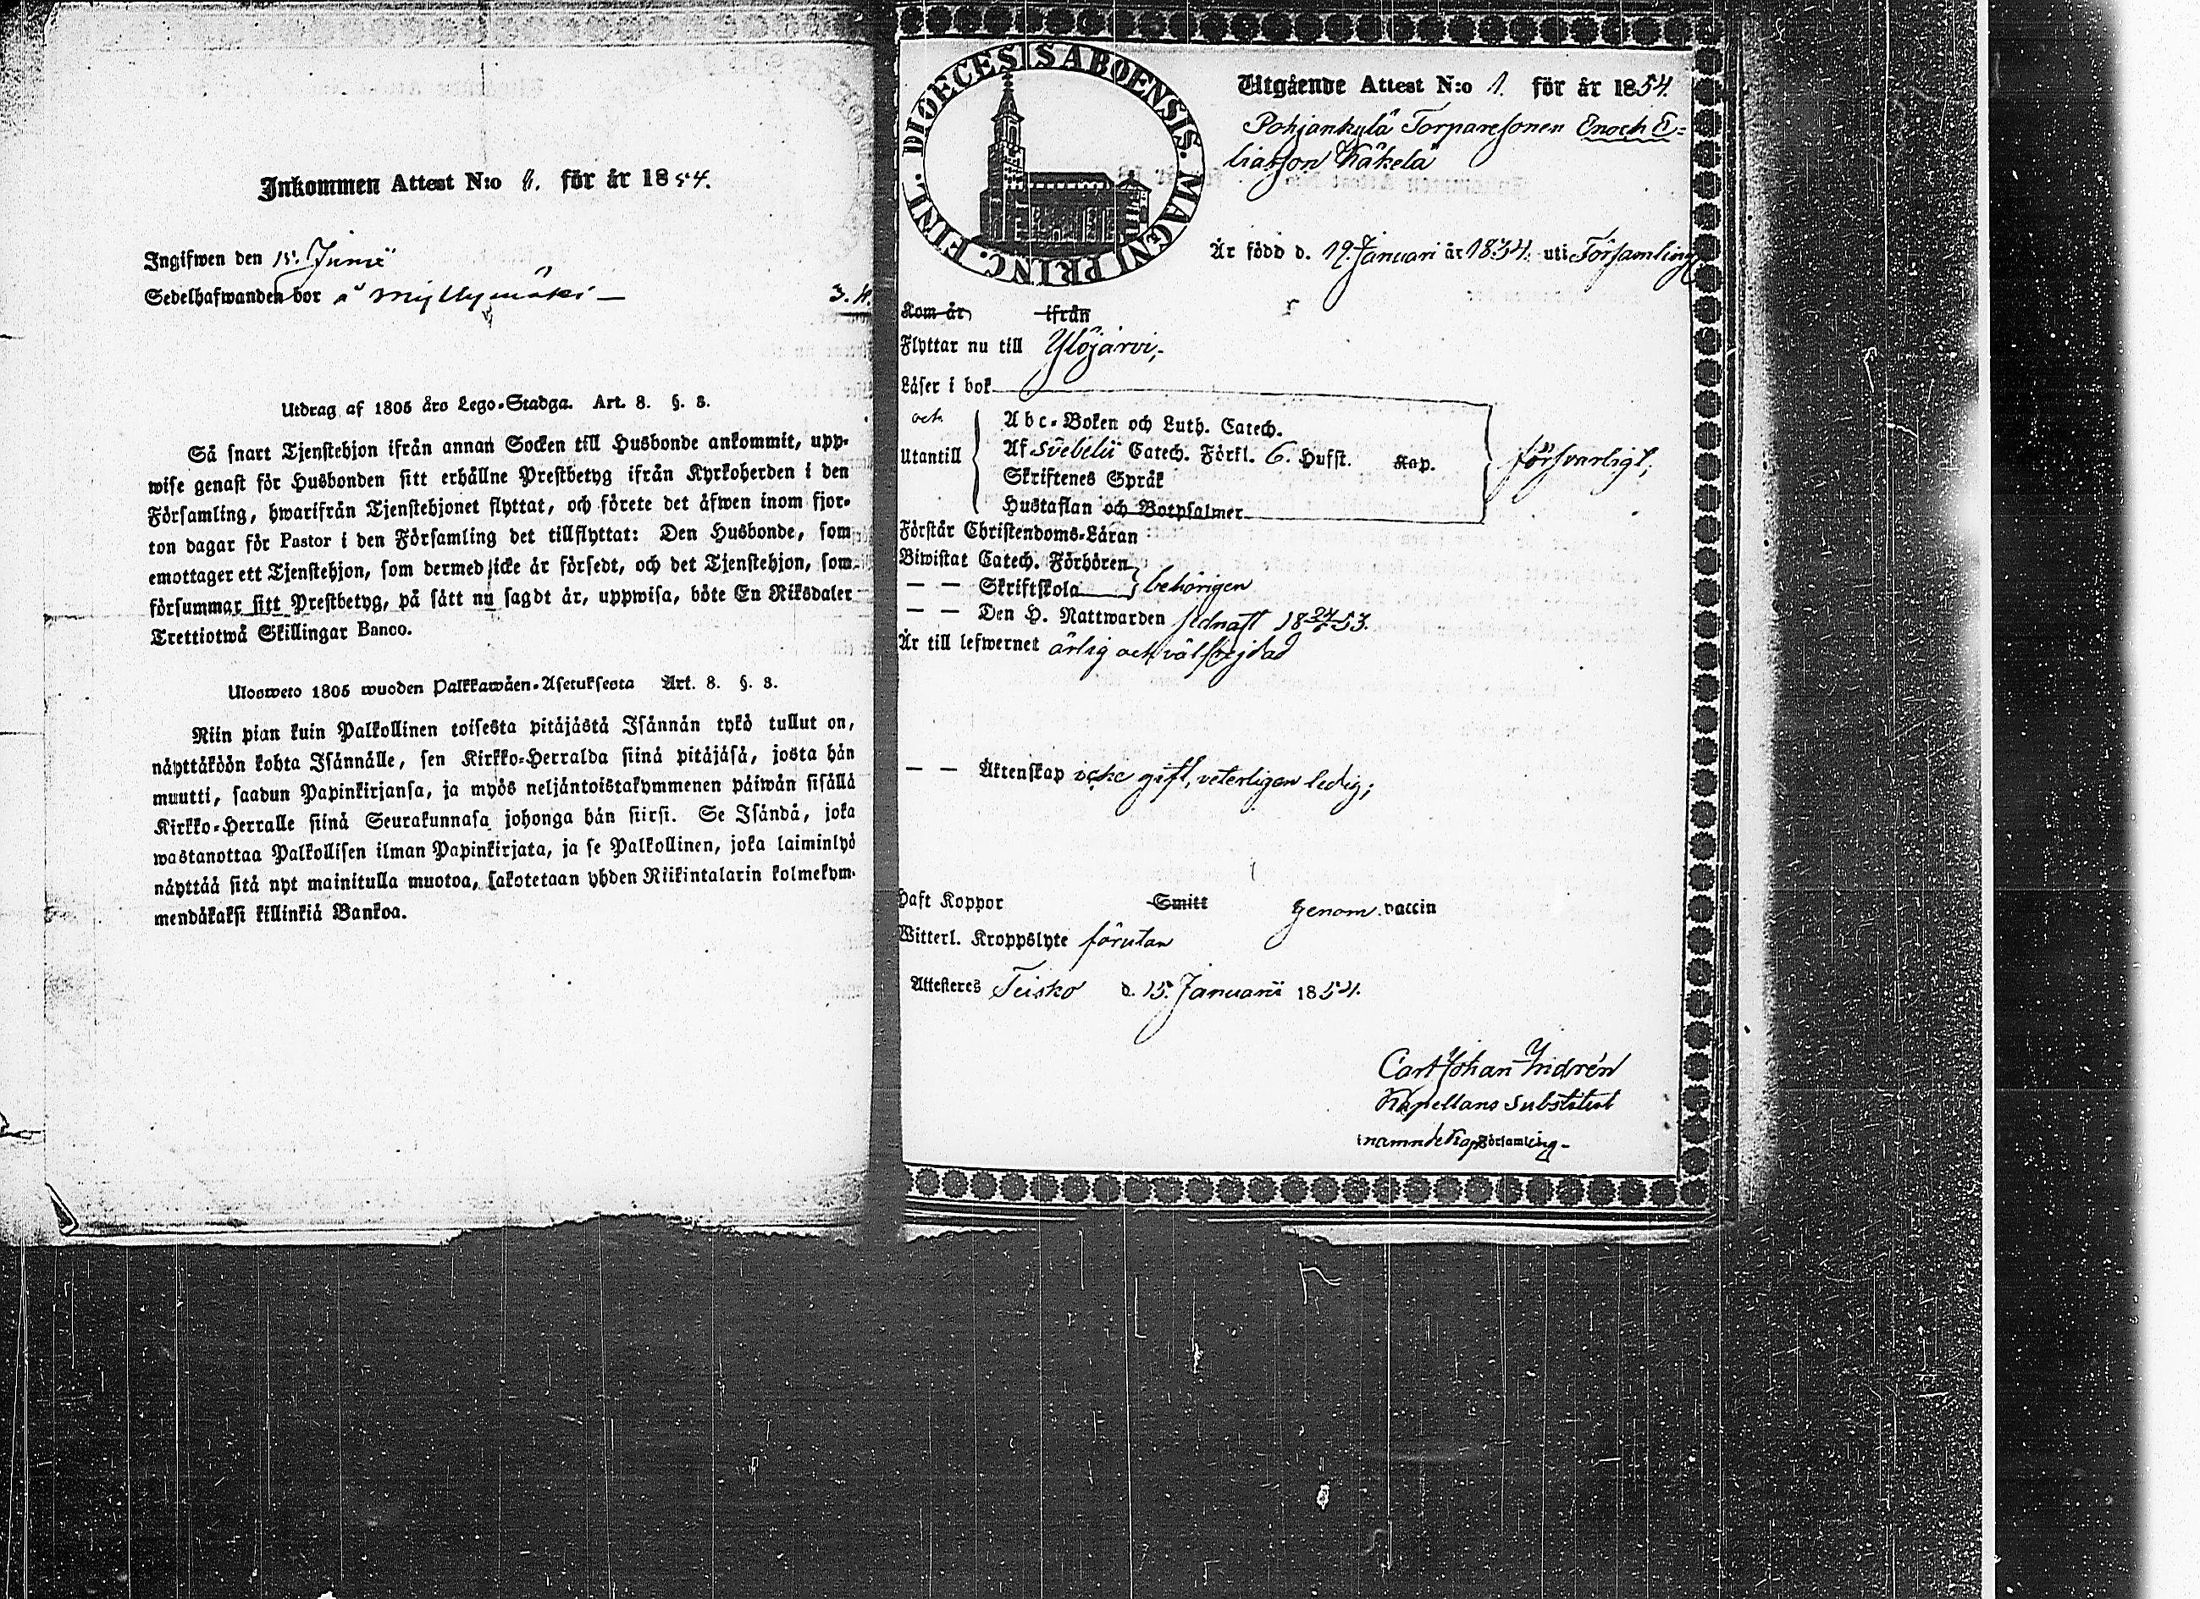 Inkommen Attest N:o 1. för år 1854.
Ingifwen den 15. Junii
Sedelhafwanden bor å Myllymäki —
3. 4.
Utdrag af 1805 års Lego-Stadga. Art. 8. §. 8.
Så snart Tjenstehjon ifrån annan Socken till Husbonde ankommit, upp-
wise genast för Husbonden sitt erhållne Prestbetyg ifrån Kyrkoherden i den
Församling, hwarifrån Tjenstehjonet flyttat, och förete det äfwen inom fjor-
ton dagar för Pastor i den Församling det tillflyttat: Den Husbonde, som
emottager ett Tjenstehjon, som dermed icke är försedt, och det Tjenstehjon, som
försummar sitt Prestbetyg, på sätt nu sagdt är, uppwisa, böte En Riksdaler
Trettiotwå Skillingar Banco.
Ulosweto 1805 wuoden Palkkawäen-Asetuksesta Art. 8. §. 8.
Niin pian kuin Palkollinen toisesta pitäjästä Isännän tykö tullut on,
näyttäköön kohta Isännälle, sen Kirkko-Herralda siinä pitäjäsä, josta hän
muutti, saadun Papinkirjansa, ja myös neljäntoistakymmenen päiwän sisällä
Kirkko-Herralle siinä Seurakunnasa johonga hän siirsi. Se Isändä, joka
wastanottaa Palkollisen ilman Papinkirjata, ja se Palkollinen, joka laiminlyö
näyttää sitä nyt mainitulla muotoa, sakotetaan yhden Riikintalarin kolmekym-
mendäkaksi killinkiä Bankoa.
DIOECESIS ABOENSIS. MAGNI PRINC. FINL.
Utgående Attest N:o 1. för år 1854.
Pohjankylä Torparesonen Enoch E-
liasson Käkelä
Är född d. 19. Januari år 1834. uti Församling
Kom år ifrån
Flyttar nu till Ylöjärvi,
Läser i bok
och
Utantill
Abc-Boken och Luth. Catech.
Af Svebelii Catech. Förkl. 6. Hufst. Kap.
Skriftenes Språk
Hustaflan och Botpsalmer
försvarligt;
Förstår Christendoms-Läran
Biwistat Catech. Förhören
— — Skriftskola behörigen
— — Den H. Nattwarden sednast 18 24/7 53.
Är till lefwernet ärlig och välfrejdad
— — Äktenskap icke gift, veterligen ledig;
Haft Koppor Smitt genom vaccin
Witterl. Kroppslyte förutan
Attesteres Teisko d. 15. Januarii 1854.
Carl Johan Indrén
Kapellans Substitut
i namnde Kap Församling-